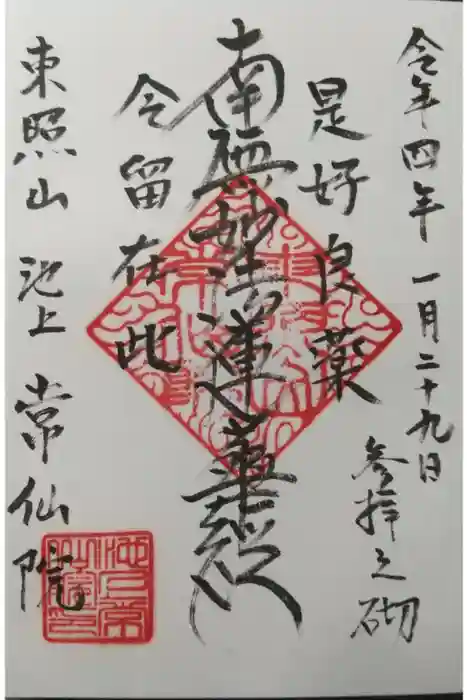 令和四年 一月二十九日
参拝之砌
是好良薬
南無妙法蓮華経
今留在此
東照山 池上 常仙院